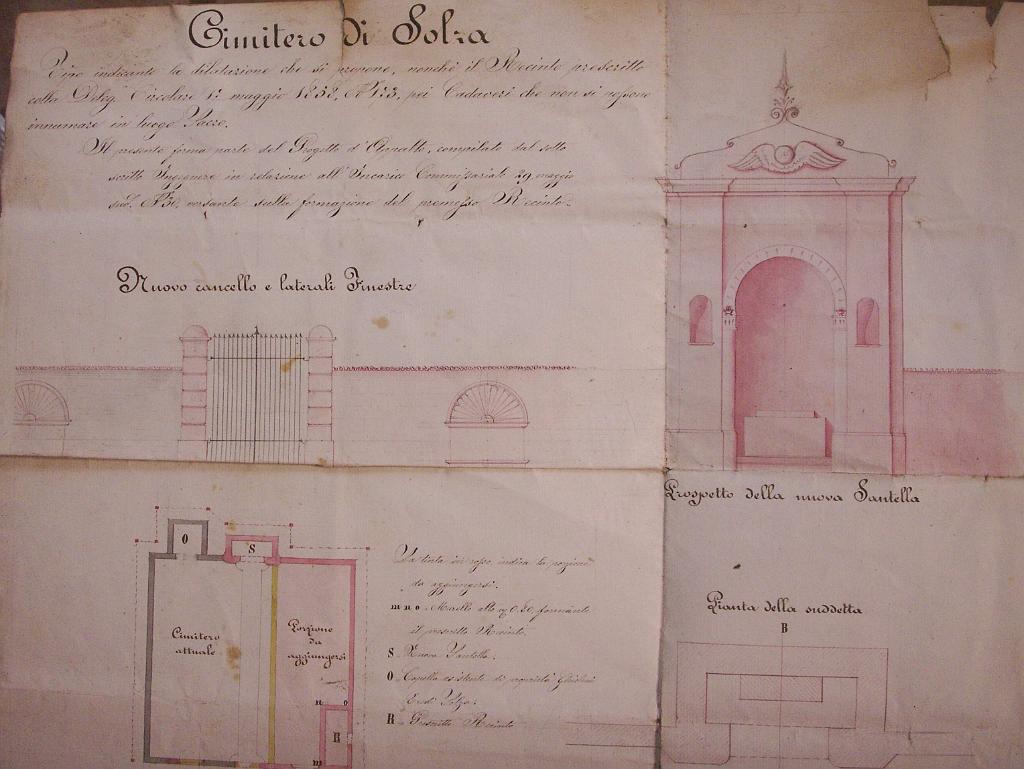 Cimitero di Solza
Tipo indicante la dilatazione che si propone, nonchè il Recinto prescritto
colla Deleg. Circolare 1º maggio 1858, Nº 173, pei Cadaveri che non si
innumare in luogo Sacro.
Il presente forma parte del Progetto d'Appalto, compilato dal sotto
scritto Ingegnere in relazione all'Incarico Commissariale 29 maggio
Nº versante sulla formazione del premesso Recinto.
Nuovo cancello e laterali Finestre
Prospetto della nuova Santella
Pianta della suddetta
B
O
S
Cimitero
attuale
Porzione
da
aggiungersi
n o
R
m
La tinta in rosso, indica la porzione
da aggiungersi.
m n o - Muello alto 0.50 formante
il prescritto Recinto.
S - Nuova Santella.
O - Capella esistente di proprietà
Eredi
R - Prescritto Recinto